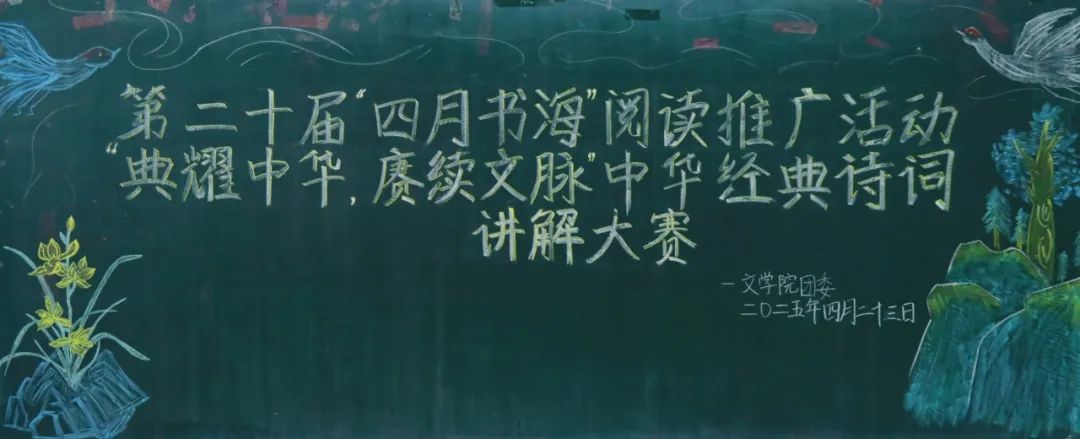 第二十届“四月书海”阅读推广活动
“典耀中华,赓续文脉”中华经典诗词
讲解大赛
—文学院团委
二〇二五年四月二十三日